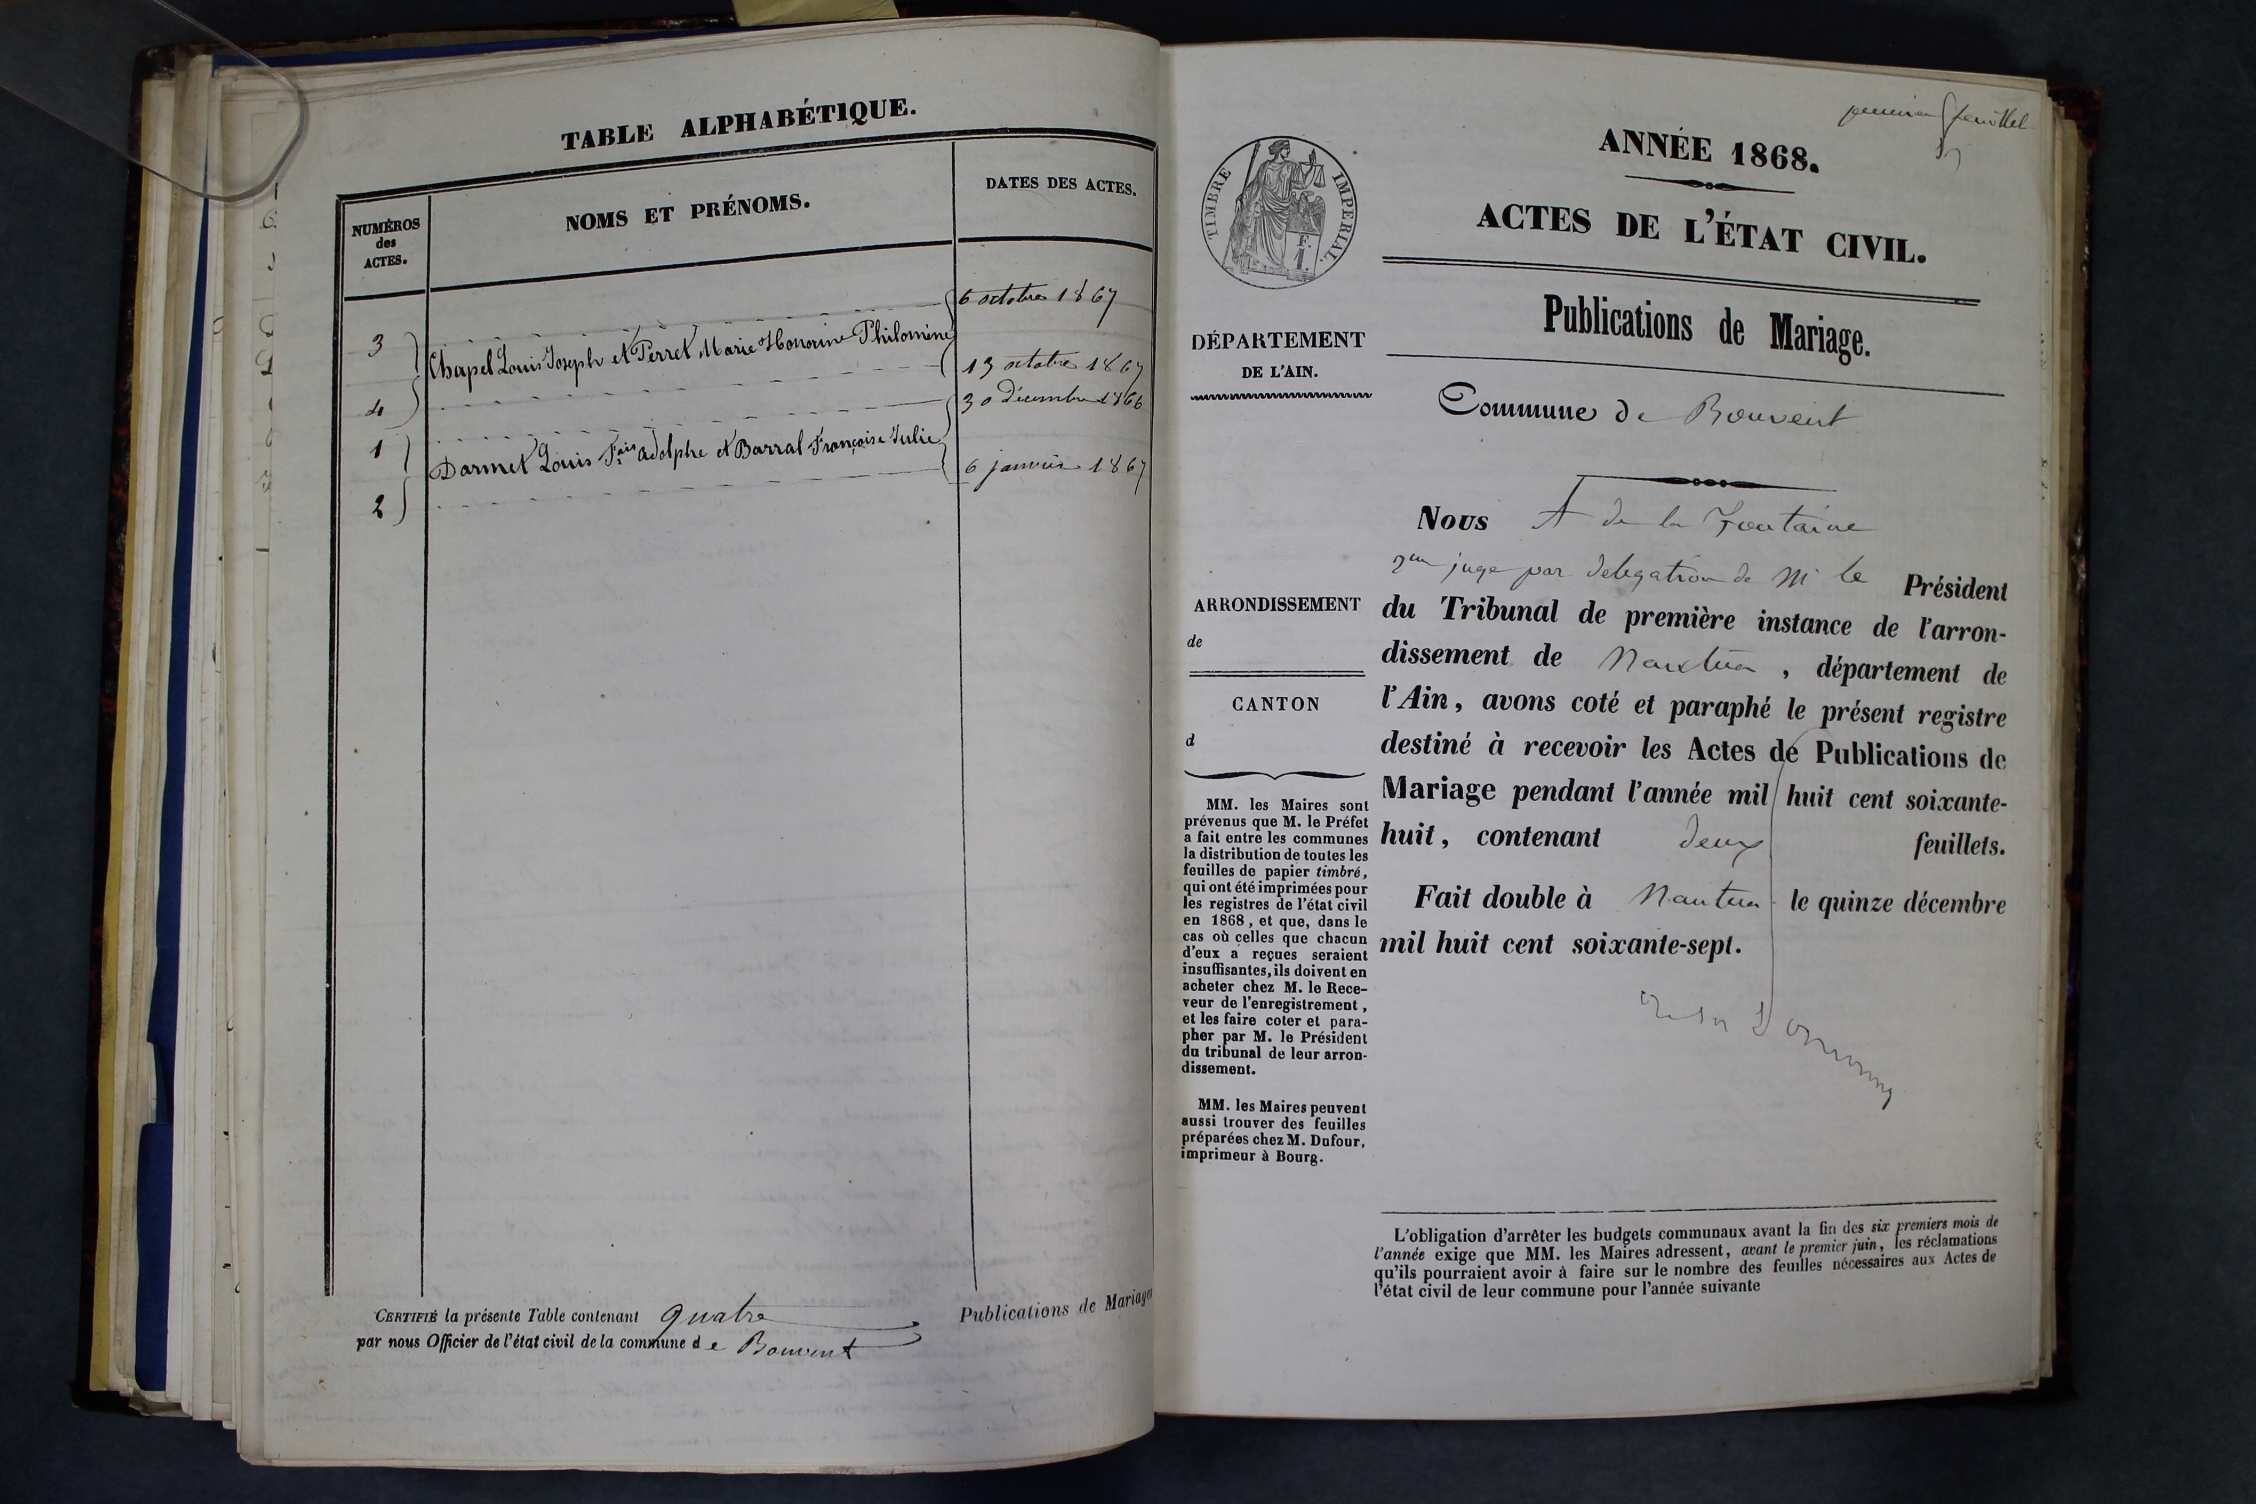 TABLE ALPHABÉTIQUE.
NUMÉROS
des
ACTES.
NOMS ET PRÉNOMS.
DATES DES ACTES.
6 octobre 1867
3
Chapel Louis Joseph et Perret Marie Honorine Philomène
13 octobre 1867
4
30 Décembre 1866
1
Darmet Louis Fois adolphe et Barral Françoise Julie
6 janvier 1867
2
CERTIFIÉ la présente Table contenant quatre Publications de Mariages
par nous Officier de l'état civil de la commune de Bouvent
premier feuillet
ANNÉE 1868.
ACTES DE L'ÉTAT CIVIL.
Publications de Mariage.
Commune de Bouvent
TIMBRE IMPERIAL.
F.
1.
DÉPARTEMENT
DE L'AIN.
ARRONDISSEMENT
de
CANTON
d
MM. les Maires sont
prévenus que M. le Préfet
a fait entre les communes
la distribution de toutes les
feuilles de papier timbré,
qui ont été imprimées pour
les registres de l'état civil
en 1868, et que, dans le
cas où celles que chacun
d'eux a reçues seraient
insuffisantes, ils doivent en
acheter chez M. le Rece-
veur de l'enregistrement,
et les faire coter et para-
pher par M. le Président
du tribunal de leur arron-
dissement.
MM. les Maires peuvent
aussi trouver des feuilles
préparées chez M. Dufour,
imprimeur à Bourg.
Nous A de la Fontaine
juge par delegation de M le Président
du Tribunal de première instance de l'arron-
dissement de Nantua, département de
l'Ain, avons coté et paraphé le présent registre
destiné à recevoir les Actes de Publications de
Mariage pendant l'année mil huit cent soixante-
huit, contenant deux feuillets.
Fait double à Nantua le quinze décembre
mil huit cent soixante-sept.
L'obligation d'arrêter les budgets communaux avant la fin des six premiers mois de
l'année exige que MM. les Maires adressent, avant le premier juin, les réclamations
qu'ils pourraient avoir à faire sur le nombre des feuilles nécessaires aux Actes de
l'état civil de leur commune pour l'année suivante